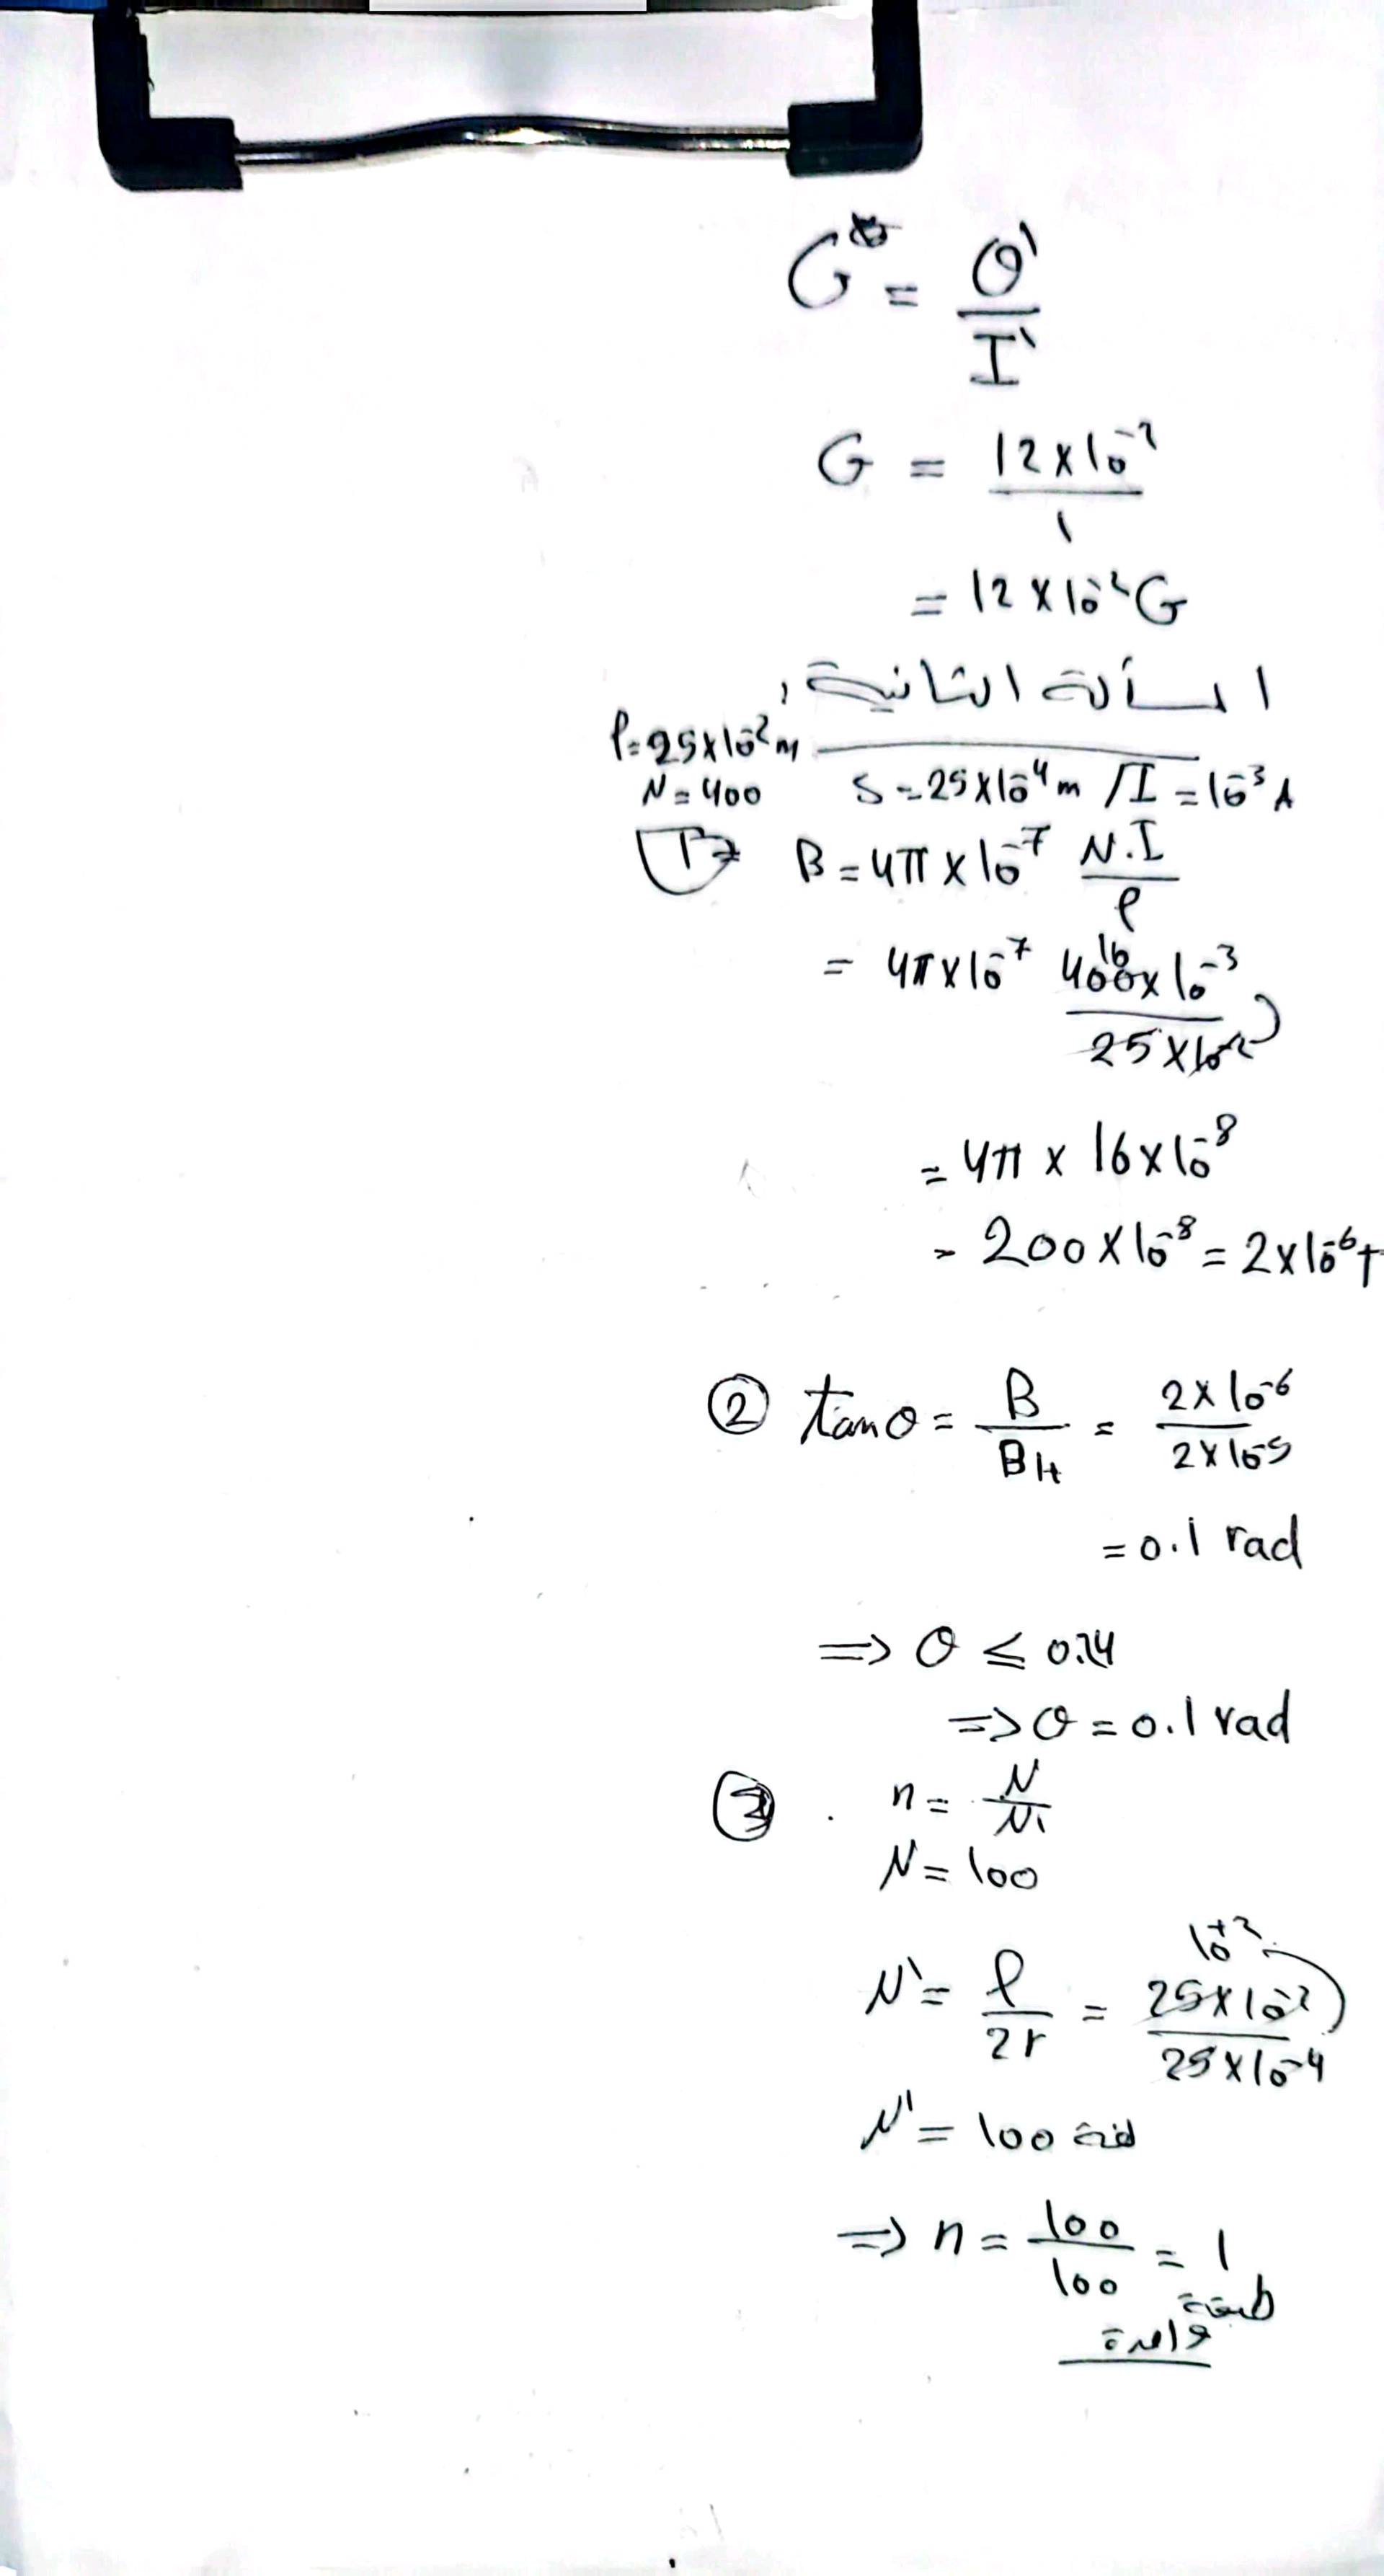 G = θ' / I'
G = 12×10⁻² / 1
= 12×10⁻² G
المسألة الثانية:
l = 25×10⁻² m
N = 400 S = 25×10⁻⁴ m / I = 10⁻³ A
B = 4π×10⁻⁷ N.I / l
= 4π×10⁻⁷ 400×10⁻³ / 25×10⁻² 16
= 4π × 16×10⁻⁸
= 200×10⁻⁸ = 2×10⁻⁶ T
② tanθ = B / BH = 2×10⁻⁶ / 2×10⁻⁵
= 0.1 rad
=> θ ≤ 0.24
=> θ = 0.1 rad
③ n = N / N'
N = 100
10⁺²
N' = l / 2r = 25×10⁻² / 25×10⁻⁴
N' = 100 لفة
=> n = 100 / 100 = 1
طبقة
واحدة